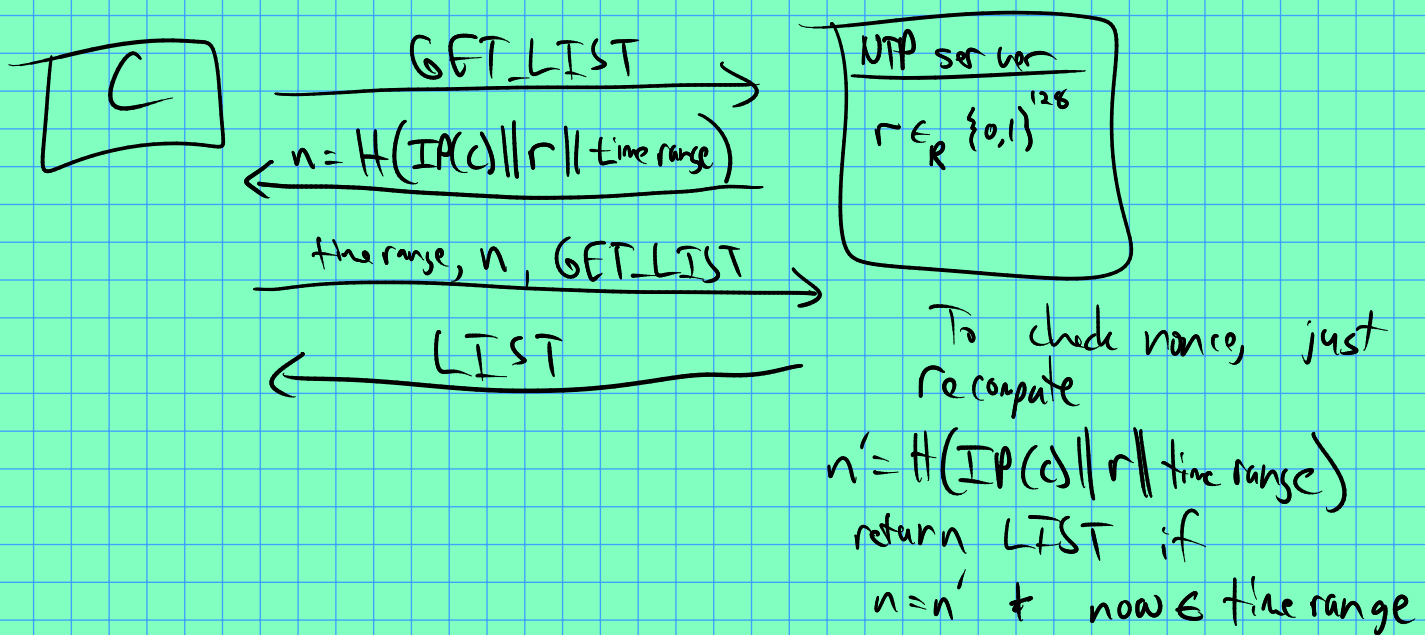 C
GET_LIST
n = H(IP(C)||r||time range)
time range, n, GET_LIST
LIST
NTP server
r ∈R {0,1}^128
To check nonce, just
recompute
n' = H(IP(C)||r||time range)
return LIST if
n = n' + now ∈ time range